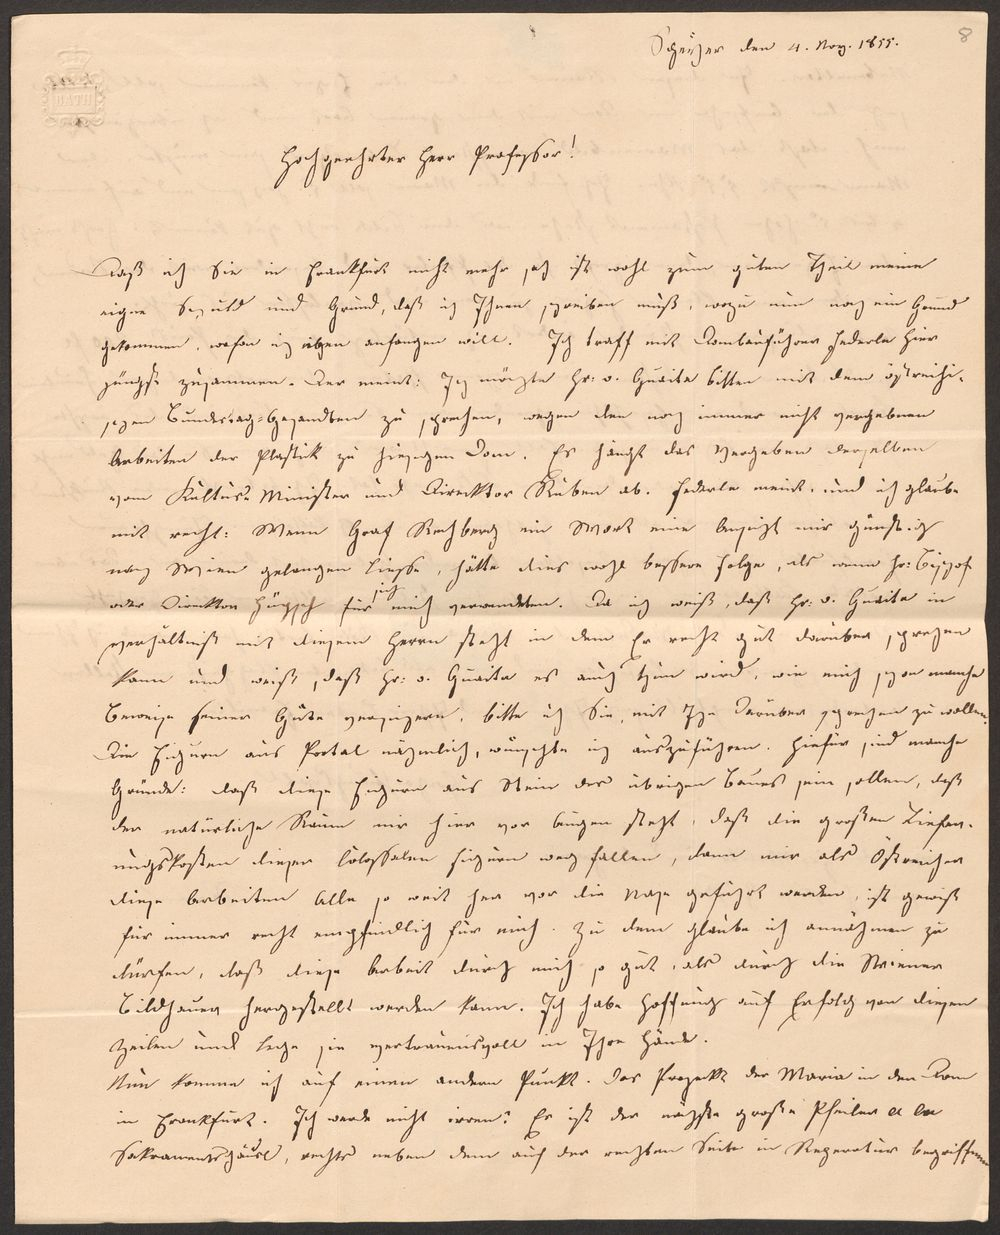 8
Speyer den 4. Nov. 1855.
BATH
Hochgeehrter Herr Professor!
Daß ich Sie in Frankfurt nicht mehr sah ist wohl zum guten Theil meine
eigne Schuld und Grund, daß ich Ihnen schreiben muß, wozu nun noch ein Grund
gekommen, wofon ich eben anfangen will. Ich traff mit Dombauführer Federle hier
jüngst zusammen. Der meint: Ich möchte Hr: v. Guaita bitten mit dem östreichi-
schen Bundestag-Gesandten zu sprechen, wegen den noch immer nicht vergebnen
Arbeiten der Plastick zu hiesigen Dom. Es hängt das Vergeben derselben
vom Kultus-Minister und Direcktor Ruben ab. Federle meint, und ich glaube
mit recht: Wenn Graf Rechberg ein Wort eine Ansicht mir günstig
nach Wien gelangen liesse, hätte dies wohl bessere Folge, als wenn Hr: Bischof
oder Direktor Hübsch für mich sich verwendeten. Da ich weiß, daß Hr: v. Guaita in
Verhältniß mit diesem Herrn steht in dem Er recht gut darüber sprechen
kann und weiß, daß Hr: v. Guaita es auch thun wird, wie mich schon manche
Beweise seiner Güte versichern, bitte ich Sie, mit Ihm darüber sprechen zu wollen.
Die Figuren ans Portal nähmlich, wünschte ich auszuführen. Hiefür sind manche
Gründe: daß diese Figuren aus Stein des übrigen Baues sein sollen, daß
der natürliche Raum mir hier vor Augen steht, daß die großen Liefer-
ungskosten dieser Colossalen Figuren weg fallen, dann mir als Östreicher
diese Arbeiten Alle so weit her vor die Nase geführt werden, ist gewiß
für immer recht empfindlich für mich. Zu dem glaube ich annähmen zu
dürfen, daß diese Arbeit durch mich so gut, als durch die Wiener
Bildhauer hergestellt werden kann. Ich habe Hoffnung auf Erfolg von diesen
Zeilen und lege sie vertrauensvoll in Ihre Hände.
Nun komme ich auf einen andern Punkt. Das Projekt der Maria in den Dom
in Frankfurt. Ich werde nicht irren? Es ist der nächste große Pfeiler a la
Sakramentshäusl, rechts neben dem auf der rechten Seite in Reperatur begriffenen